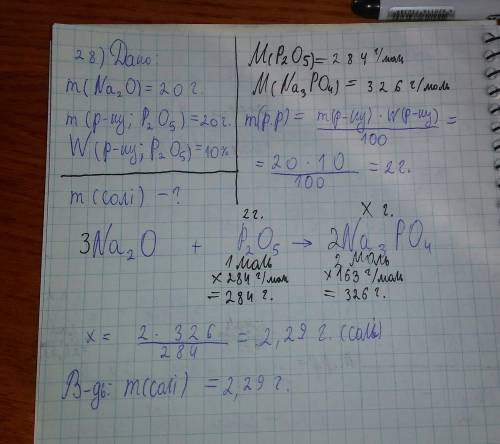 28) Дано:
m(Na₂O)=20г.
m(р-ну; P₂O₅)=20г.
W(р-ну; P₂O₅)=10%
m(солі) -?
M(P₂O₅)=284г/моль
M(Na₃PO₄)=326г/моль
m(р.р)= m(р-ну)·W(р-ну)/100 =
= 20·10/100 = 2г.
2г. X г.
3Na₂O + P₂O₅ → 2Na₃PO₄
1 моль 2 моль
×284г/моль ×163г/моль
=284г. =326г.
x= 2·326/284 = 2,29г. (солі)
В-дь: m(солі) =2,29г.